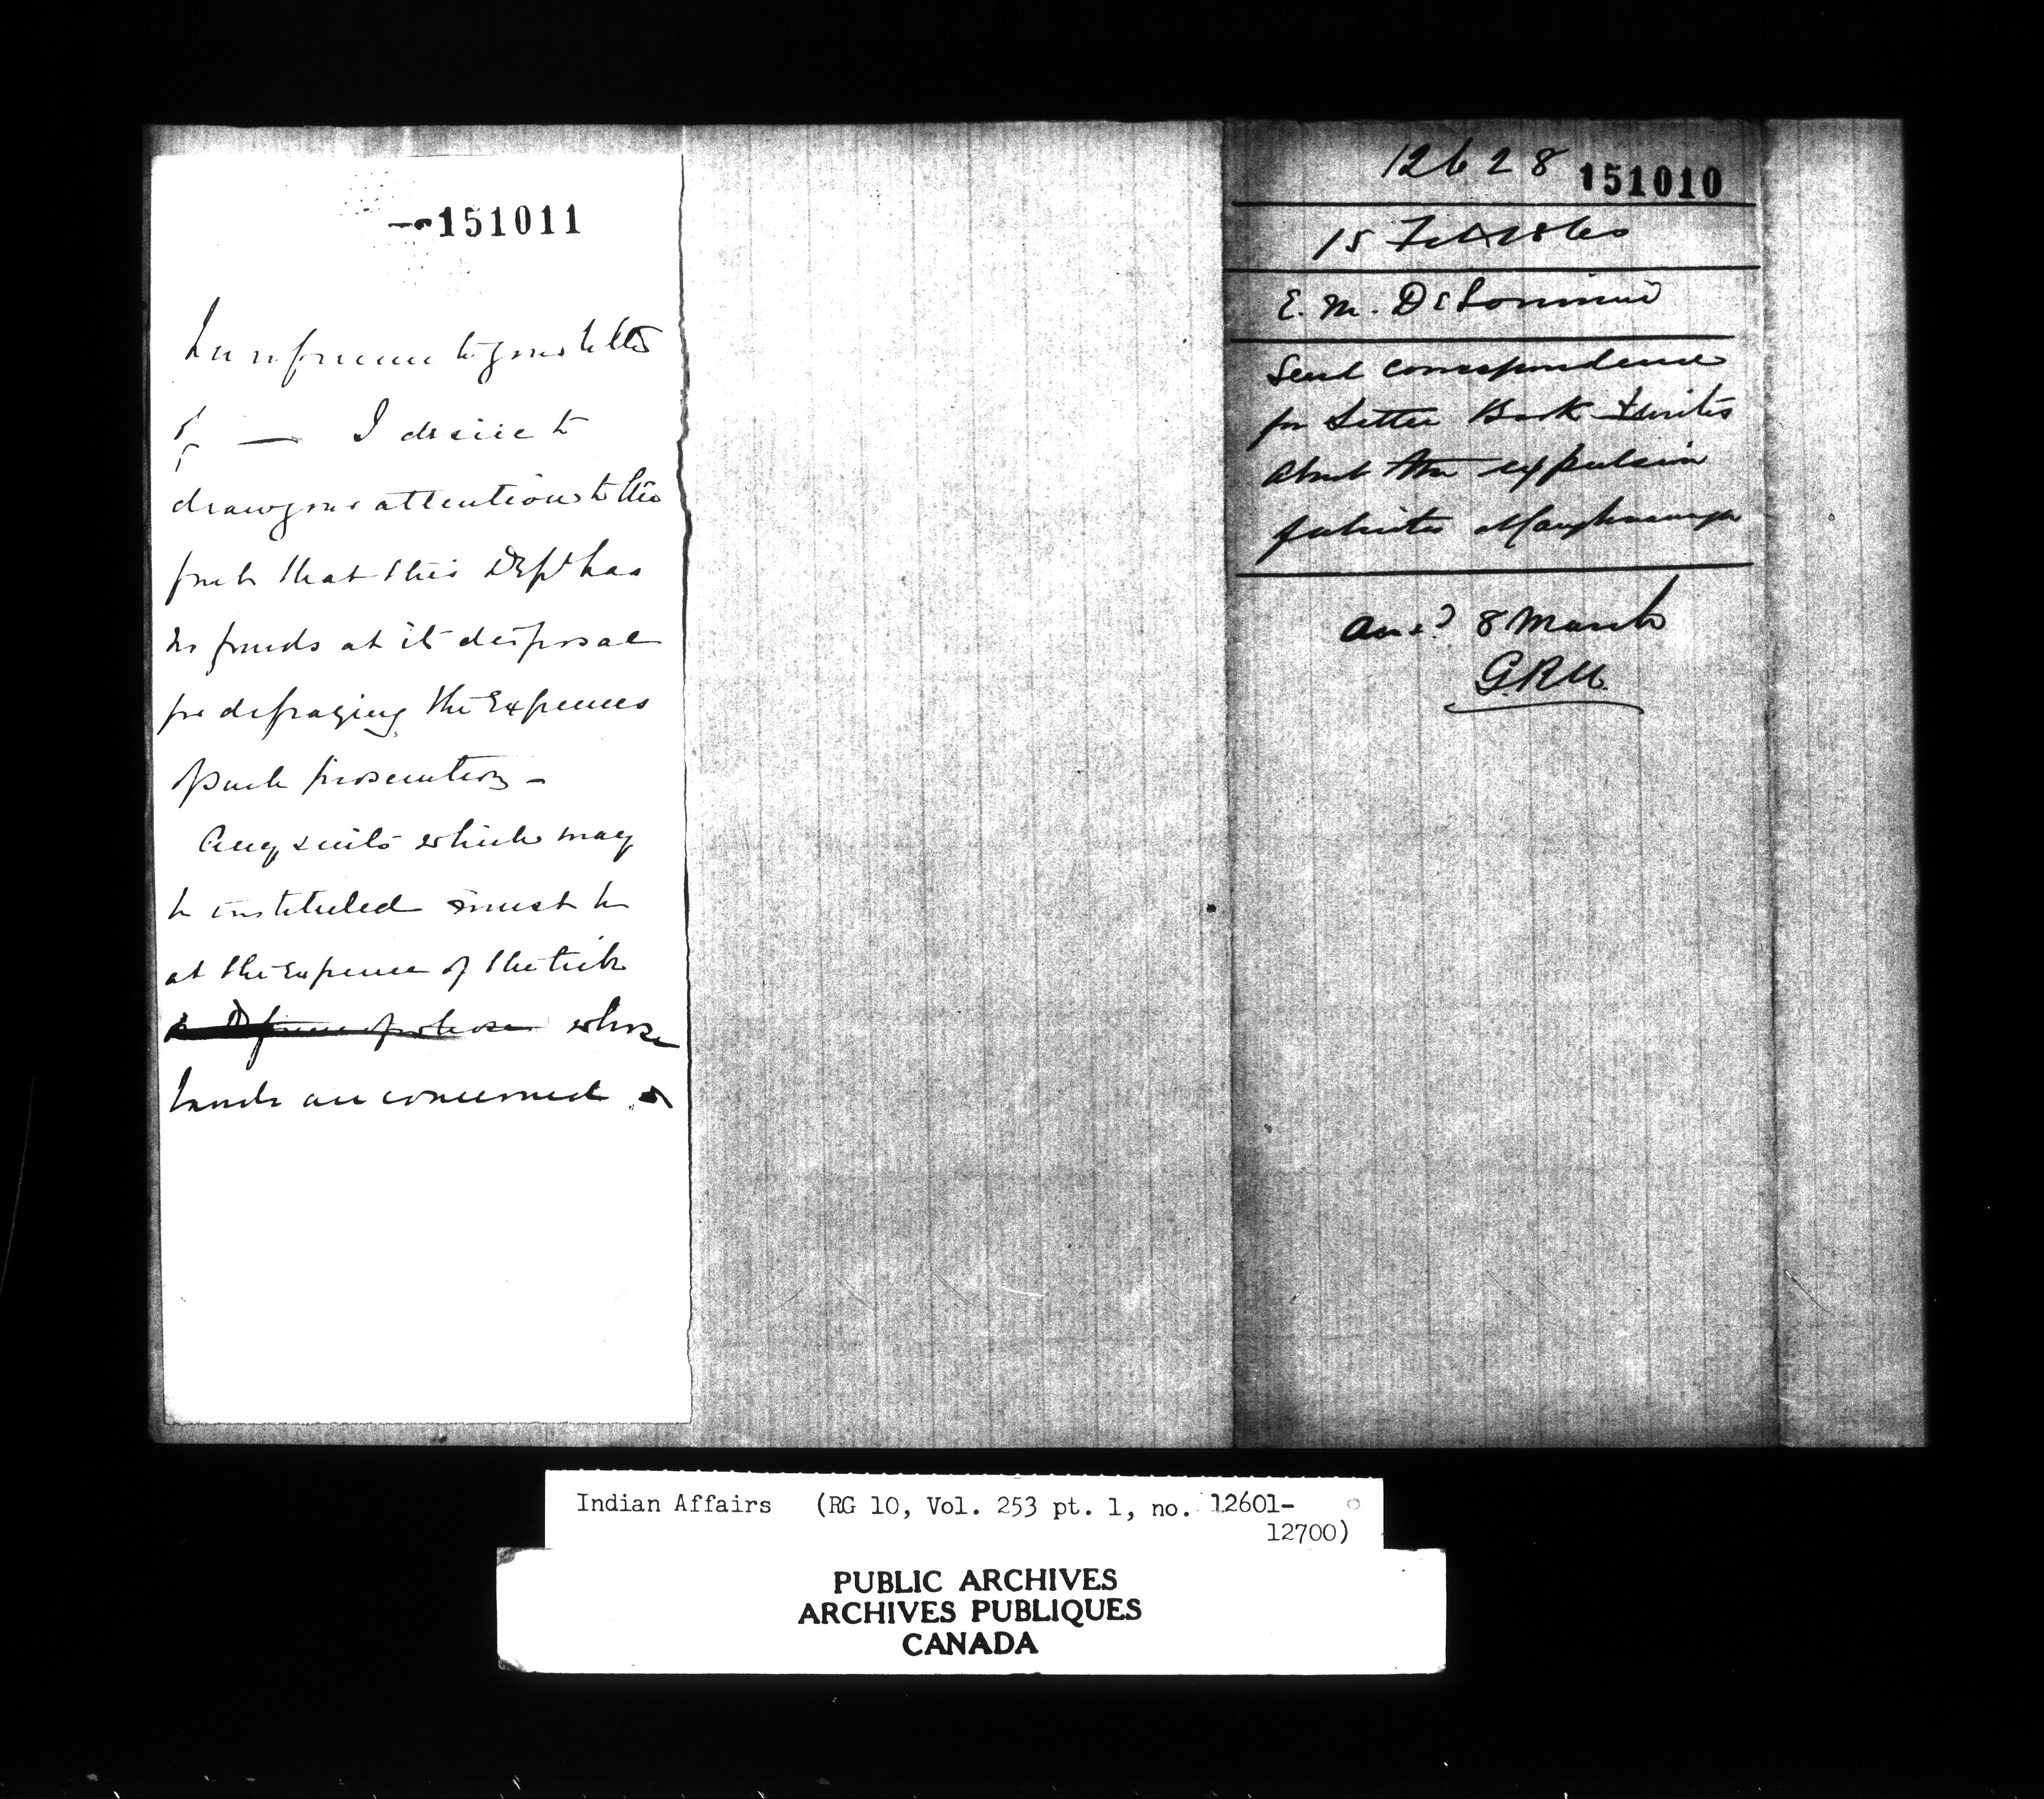 151011
In reference to your letter
of — I desire to
draw your attention to the
fact that this Dept has
no funds at its disposal
for defraying the Expenses
of such prosecution –
Any suits which may
be instituted must be
at the Expense of the tribe
whose
lands are concerned
12628 151010
15 Feb 1860
E. M. DeLorimier
Send correspondence
for Letter Book & writes
about the expulsion
of whites
Ansd 8 March
G.R.M.
Indian Affairs (RG 10, Vol. 253 pt. 1, no. 12601-
12700)
PUBLIC ARCHIVES
ARCHIVES PUBLIQUES
CANADA